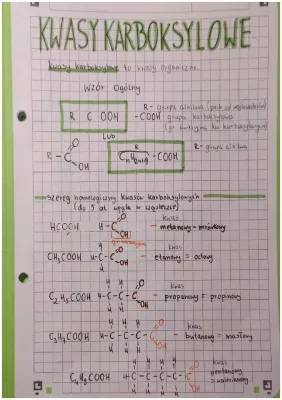 KWASY KARBOKSYLOWE
kwasy karboksylowe to kwasy organiczne.
Wzór ogólny
R C OOH
R - grupa alkilowa
-COOH grupa karboksylowa
Lub
R - C O OH
R
CnH2n+1 - COOH
R - grupa alkilowa
szereg homologiczny kwasów karboksylowych
HCOOH H-C O OH - kwas metanowy = mrówkowy
CH3COOH H-C-C O OH - kwas etanowy = octowy
C2H5COOH H-C-C-C O OH - kwas propanowy = propionowy
C3H7COOH H-C-C-C-C O OH - kwas butanowy = masłowy
C4H9COOH H-C-C-C-C-C O OH - kwas pentanowy = walerianowy